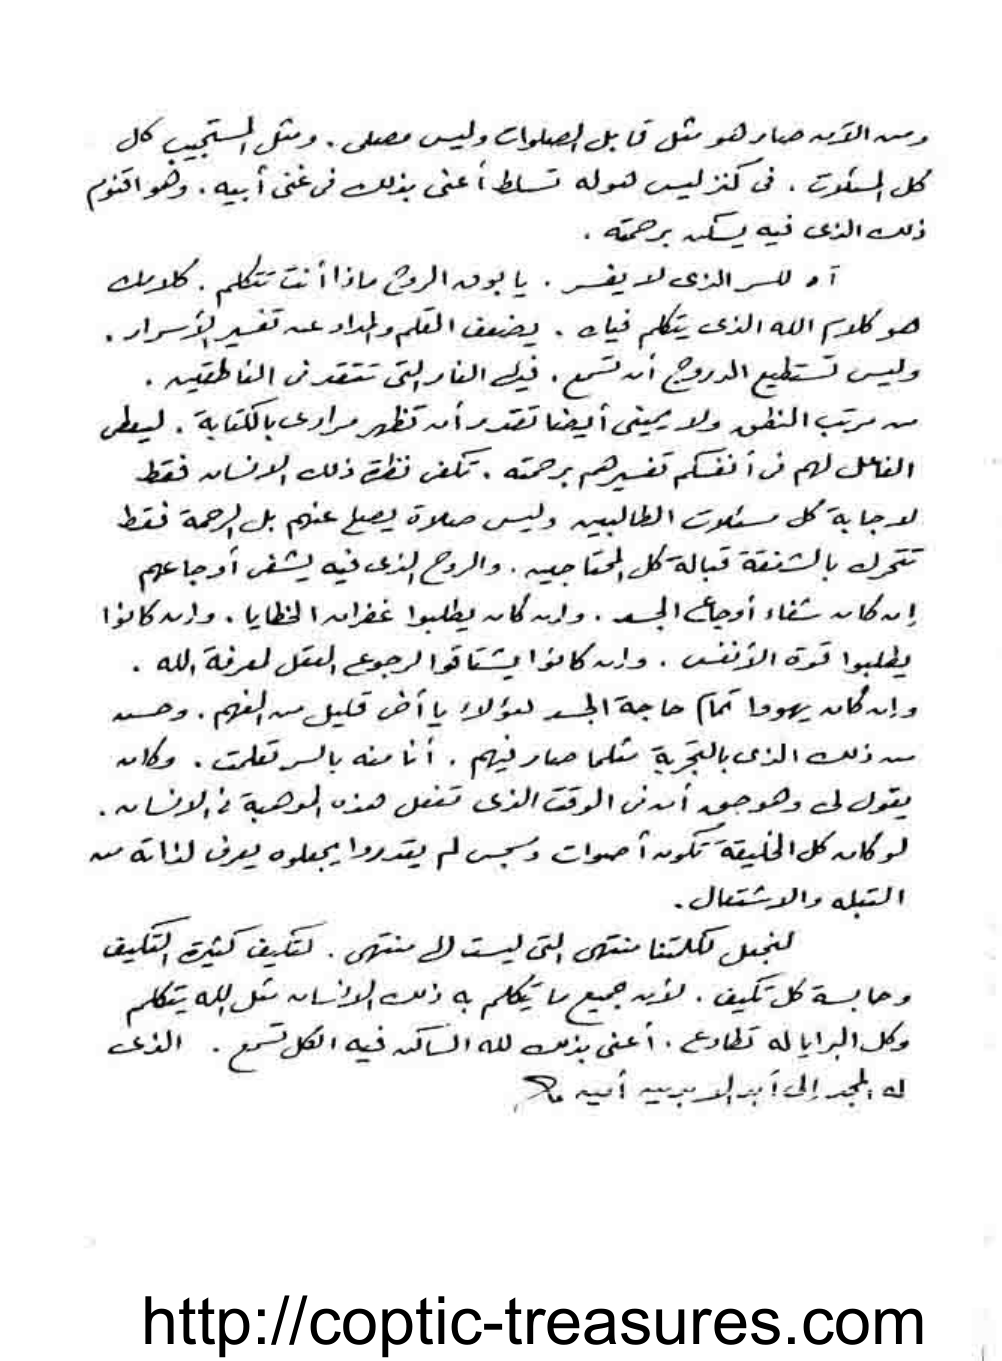 ومن الآن صار هو مثل قابل الصلوات وليس مصلى . ومثل المستجيب كال
كل المسئلات . فى كنز ليس هو له تسلط أعنى بذلك فى غنى أبيه . وهو اقنوم
ذلك الذى فيه يسكن برحمته .
آه للسر الذى لا يفسر . يا بوق الروح ماذا أنت تتكلم . كلامك
هو كلام الله الذى يتكلم فيك . يضعف القلم والمداد عن تفسير الأسرار .
وليس تستطيع الدروج أن تسمع . فيك النار التى تتقد فى الناطقين .
من مرتب النطق ولا يمينى أيضا تقدر أن تظهر مرادى بالكتابة . ليعطى
الفاعل لهم فى أنفسكم تفسيرهم برحمته . تكفى نظرة ذلك الانسان فقط
لاجابة كل مسئلات الطالبين وليس صلاة يصلى عنهم بل الرحمة فقط
تتحرك بالشفقة قبالة كل المحتاجين . والروح الذى فيه يشفى أوجاعهم
إن كان شفاء أوجاع الجسد . وان كان يطلبوا غفران الخطايا . وان كانوا
يطلبوا قوة الأنفس . وان كانوا يشتاقوا لرجوع العقل لمعرفة الله .
وان كان يهووا تمام حاجة الجسد لهؤلاء يا أخى قليل من الفهم . وحسن
من ذلك الذى بالتجربة مثلما صار فيهم . أنا منه بالسر تعلمت . وكان
يقول لى وهو حق أن فى الوقت الذى تفعل هذه الموهبة فى الانسان .
لو كان كل الخليقة تكون أصوات وسجس لم يقدروا يجعلوه يعرف لذاته من
التبله والاشتعال .
لنجعل لكلمتنا منتهى التى ليست لها منتهى . لتكيف كثيرة التكليف
وحابسة كل تكيف . لأن جميع ما يتكلم به ذلك الانسان مثل الله يتكلم
وكل البرايا له تطاوع . أعنى بذلك لله الساكن فيه الكل تسمع . الذى
له المجد إلى أبد الابدين أمين
http://coptic-treasures.com